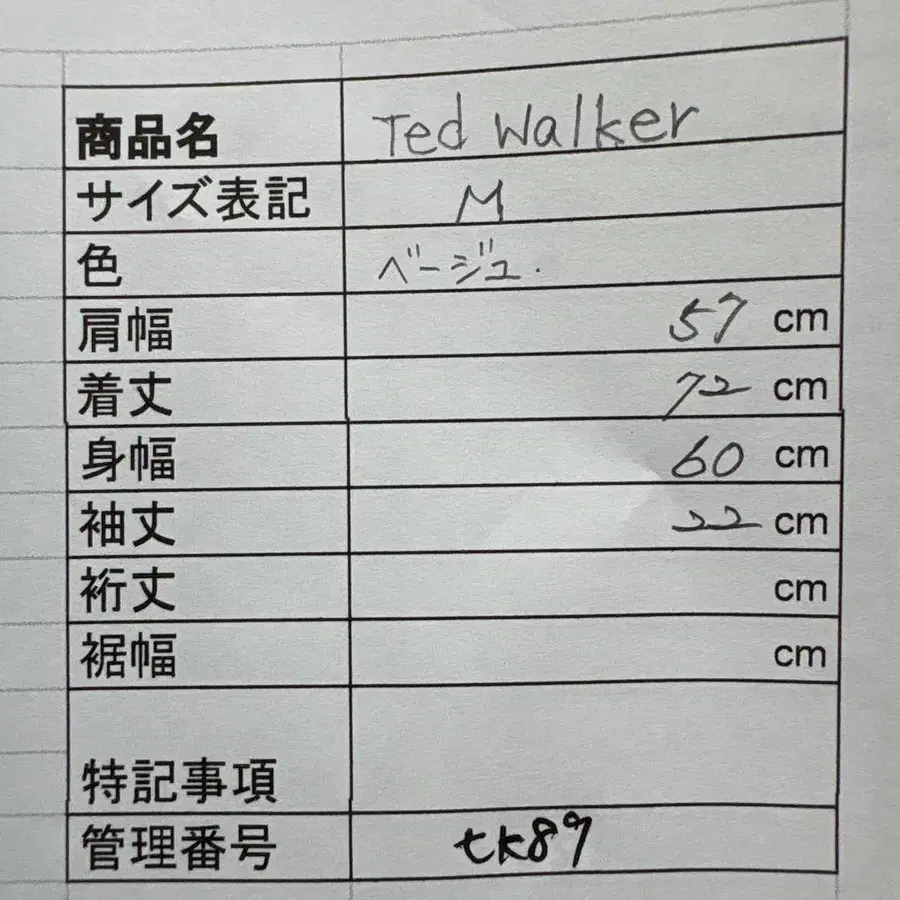 商品名 Ted Walker
サイズ表記 M
色 ベージュ.
肩幅 57 cm
着丈 72 cm
身幅 60 cm
袖丈 22 cm
裄丈 cm
裾幅 cm
特記事項
管理番号 tk89